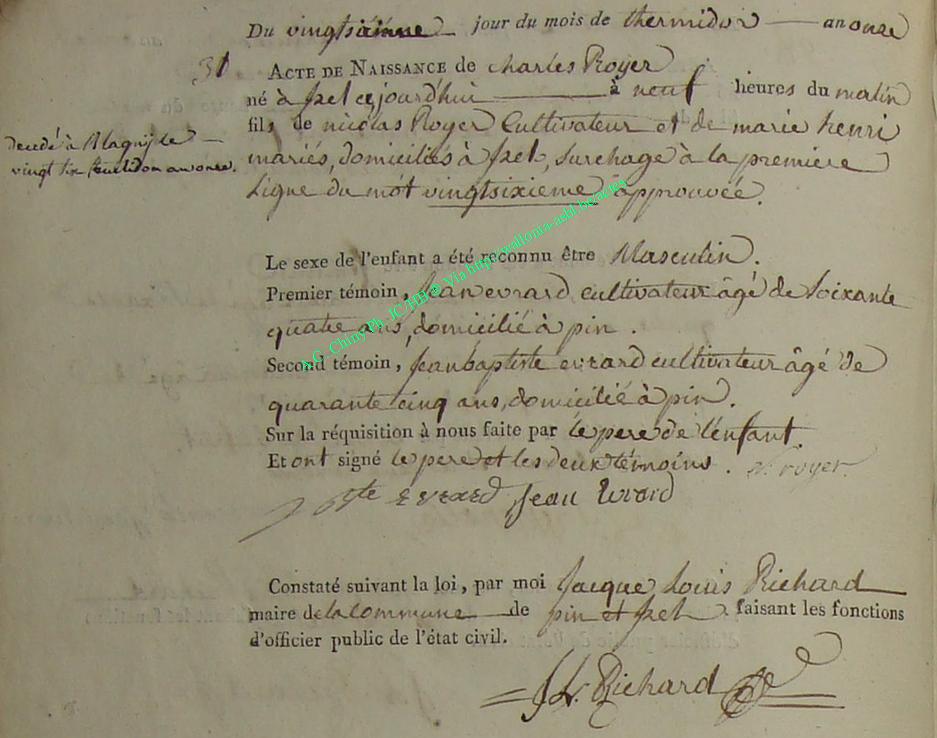 Du vingtsixième jour du mois de thermidor — an onze
31
ACTE DE NAISSANCE de charles Royer
né à Izel cejourd'hui — à neuf heures du matin
fils de nicolas Royer Cultivateur et de marie henri
mariés, domiciliés à Izel, Surchage à la premiere
Ligne du mot vingtsixieme approuvée.
decedé à
vingt six an onze.
Le sexe de l'enfant a été reconnu être Masculin.
Premier témoin, Jean evrard cultivateur âgé de Soixante
quatre ans, domicilié à pin.
Second témoin, Jean baptiste evrard cultivateur âgé de
quarante cinq ans, domicilié à pin.
Sur la réquisition à nous faite par le pere de l'enfant.
Et ont signé le pere et les deux témoins. N. royer
bte evrard Jean Evrard
Constaté suivant la loi, par moi Jacque Louis Richard
maire de la Commune — de pin et Izel faisant les fonctions
d'officier public de l'état civil.
J L. Richard
A.G. Chiny Ph. JC/HB@ Via http/wallonia-asbl.be/actes